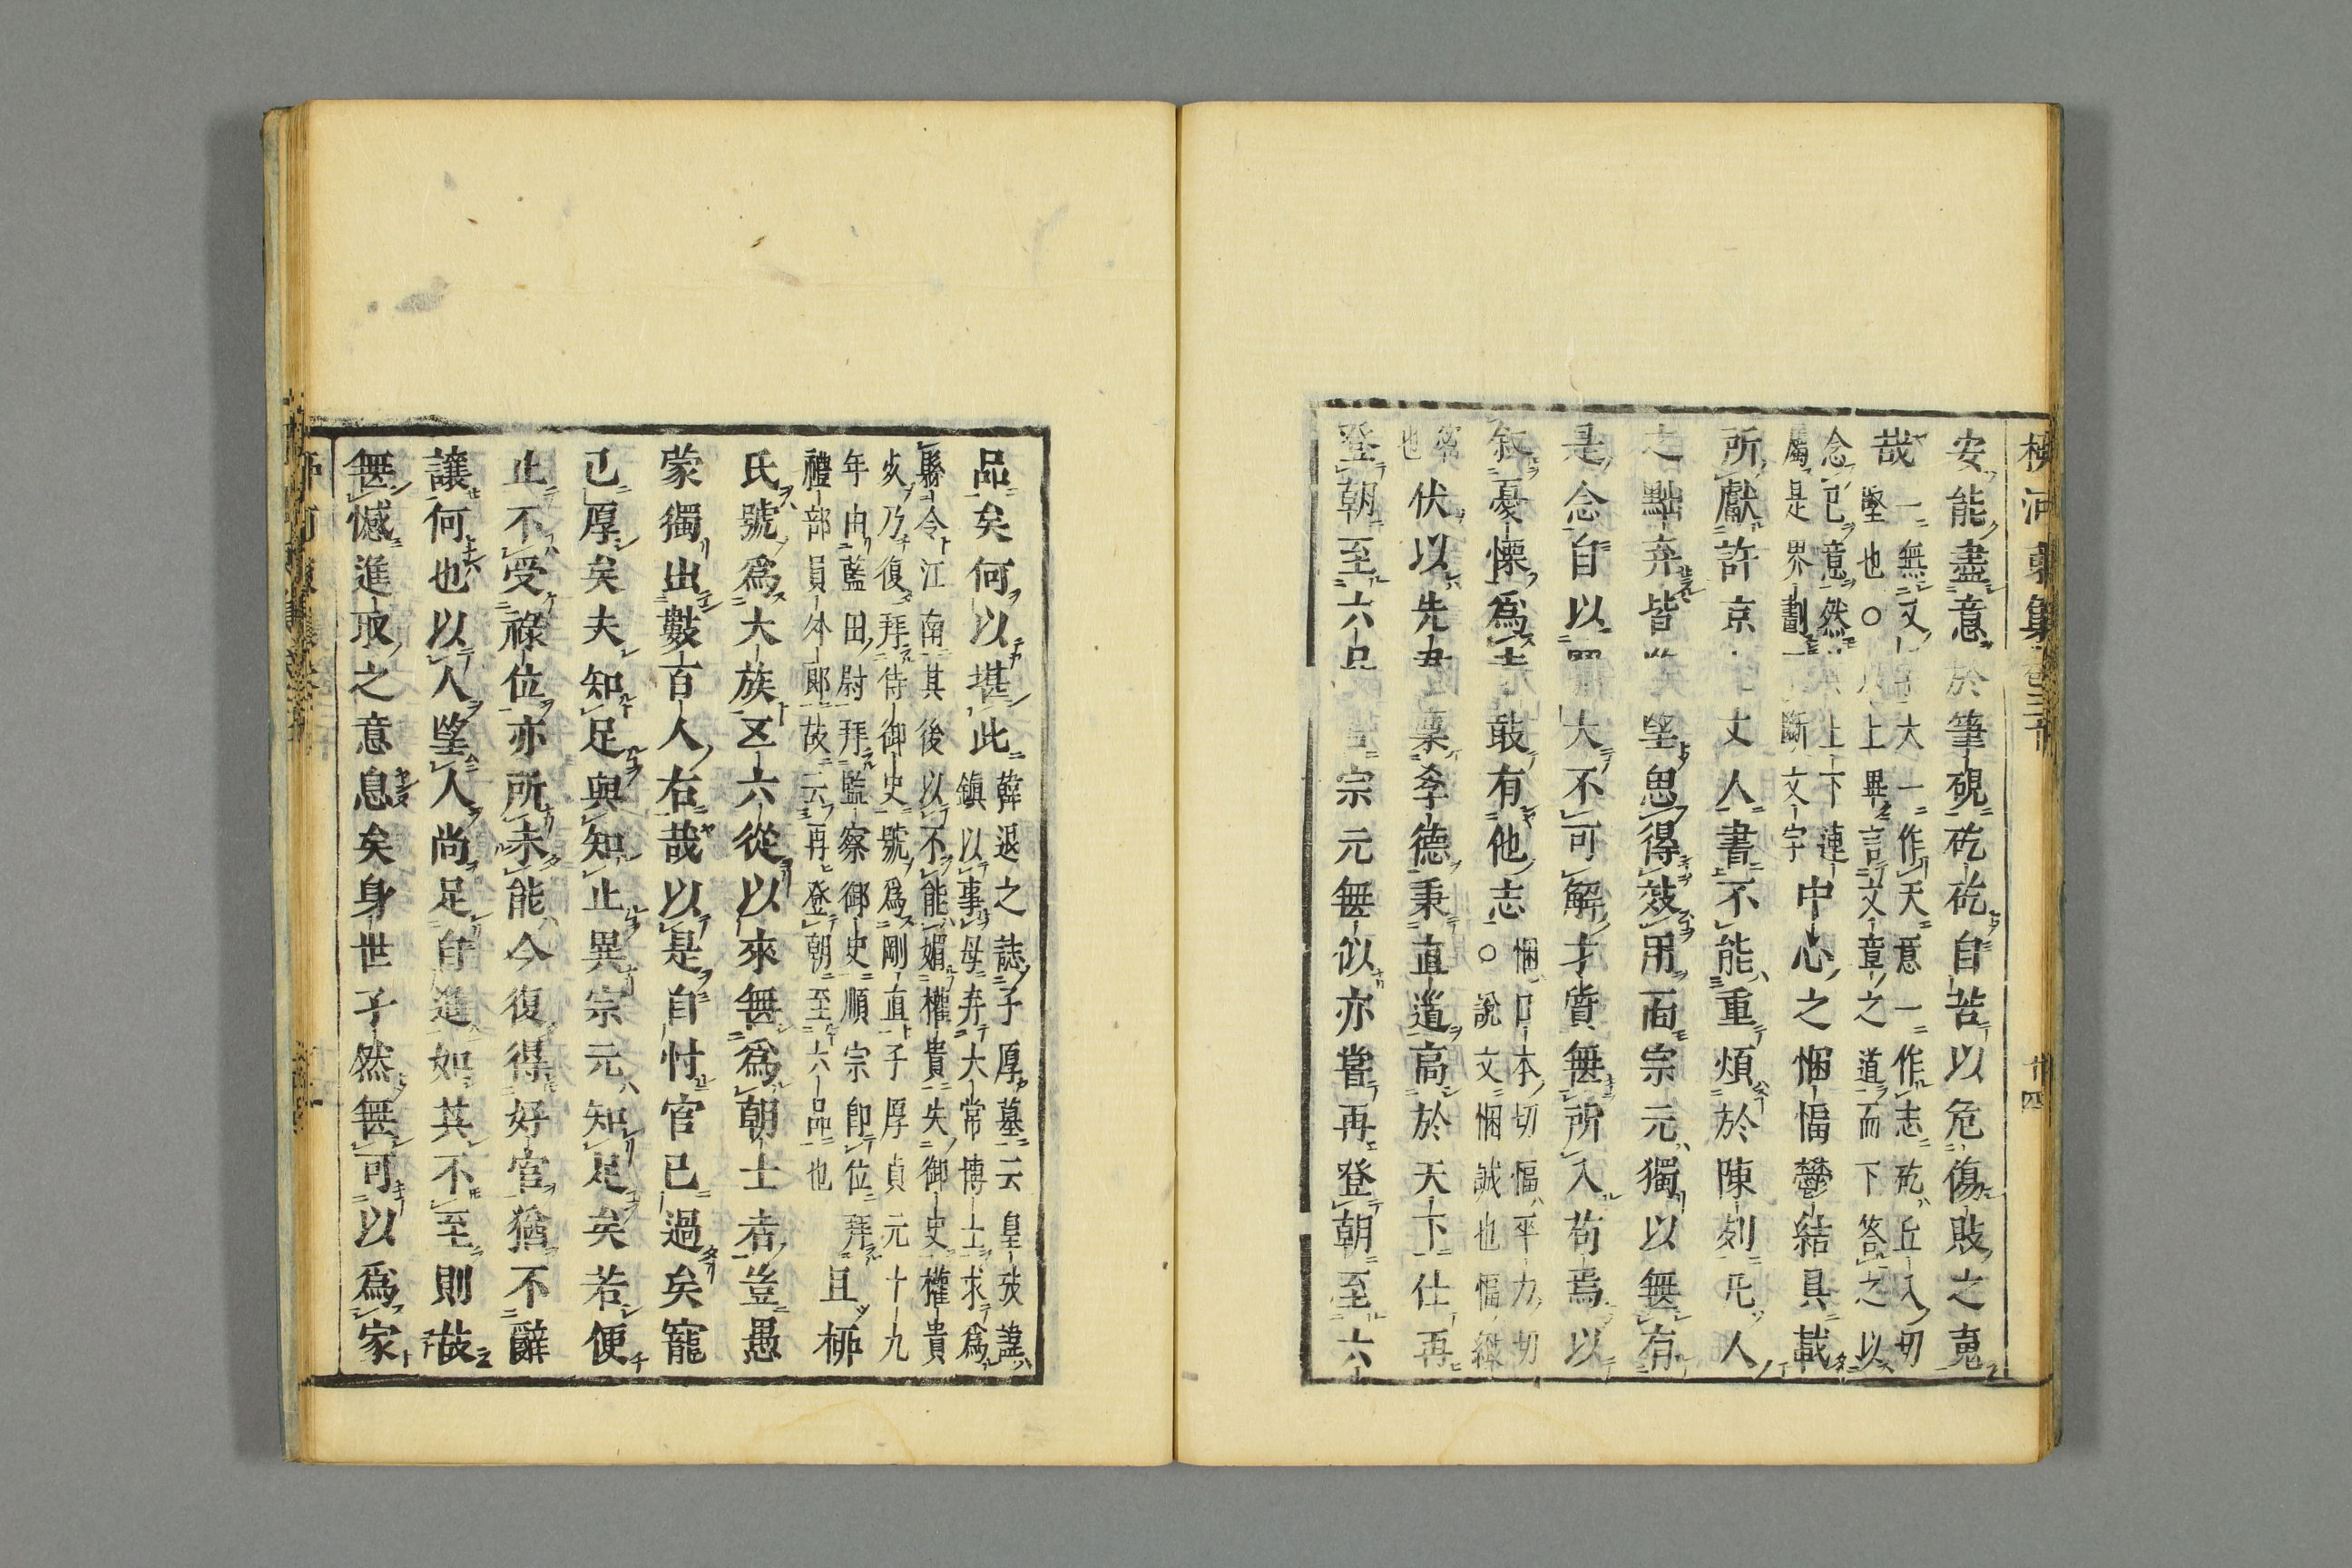 安能盡意於筆硯矻矻自苦以危傷敗之䰟
哉
一無又字大一作天意一作志矻丘入切
堅也〇以上畢言文章之道而下答之以
念已意然其上下連
屬是界劃斷文字
中心之悃愊鬱結具載
所獻許京丈人書不能重煩於陳列凡人
之黜弃皆望思得效用而宗元獨以無有
是念自以大不可解才質無所入苟焉以
叙憂慄爲敢有他志
悃口本切愊平力切
〇說文悃誠也愊
也
伏以先君稟孝德秉直道高於天下仕再
登朝至六品宗元無似亦嘗再登朝至六
品矣何以堪此
韓退之誌子厚墓云皇考諱
鎮以事母弃大常博士求爲
縣令江南其後以不能媚權貴失御史權貴
死乃復拜侍御史號爲剛直子厚貞元十九
年由藍田尉拜監察御史順宗即位拜
禮部員外郎故云再登朝至六品也
且柳
氏號爲大族五六從以來無爲朝士者豈愚
蒙獨出數百人右哉以是自忖官已過矣寵
已厚矣夫知足與知止異宗元知足矣若便
止不受祿位亦所未能今復得好官猶不辭
讓何也以人望人尚足自進如其不至則故
無憾進取之意息矣身世孑然無可以爲家